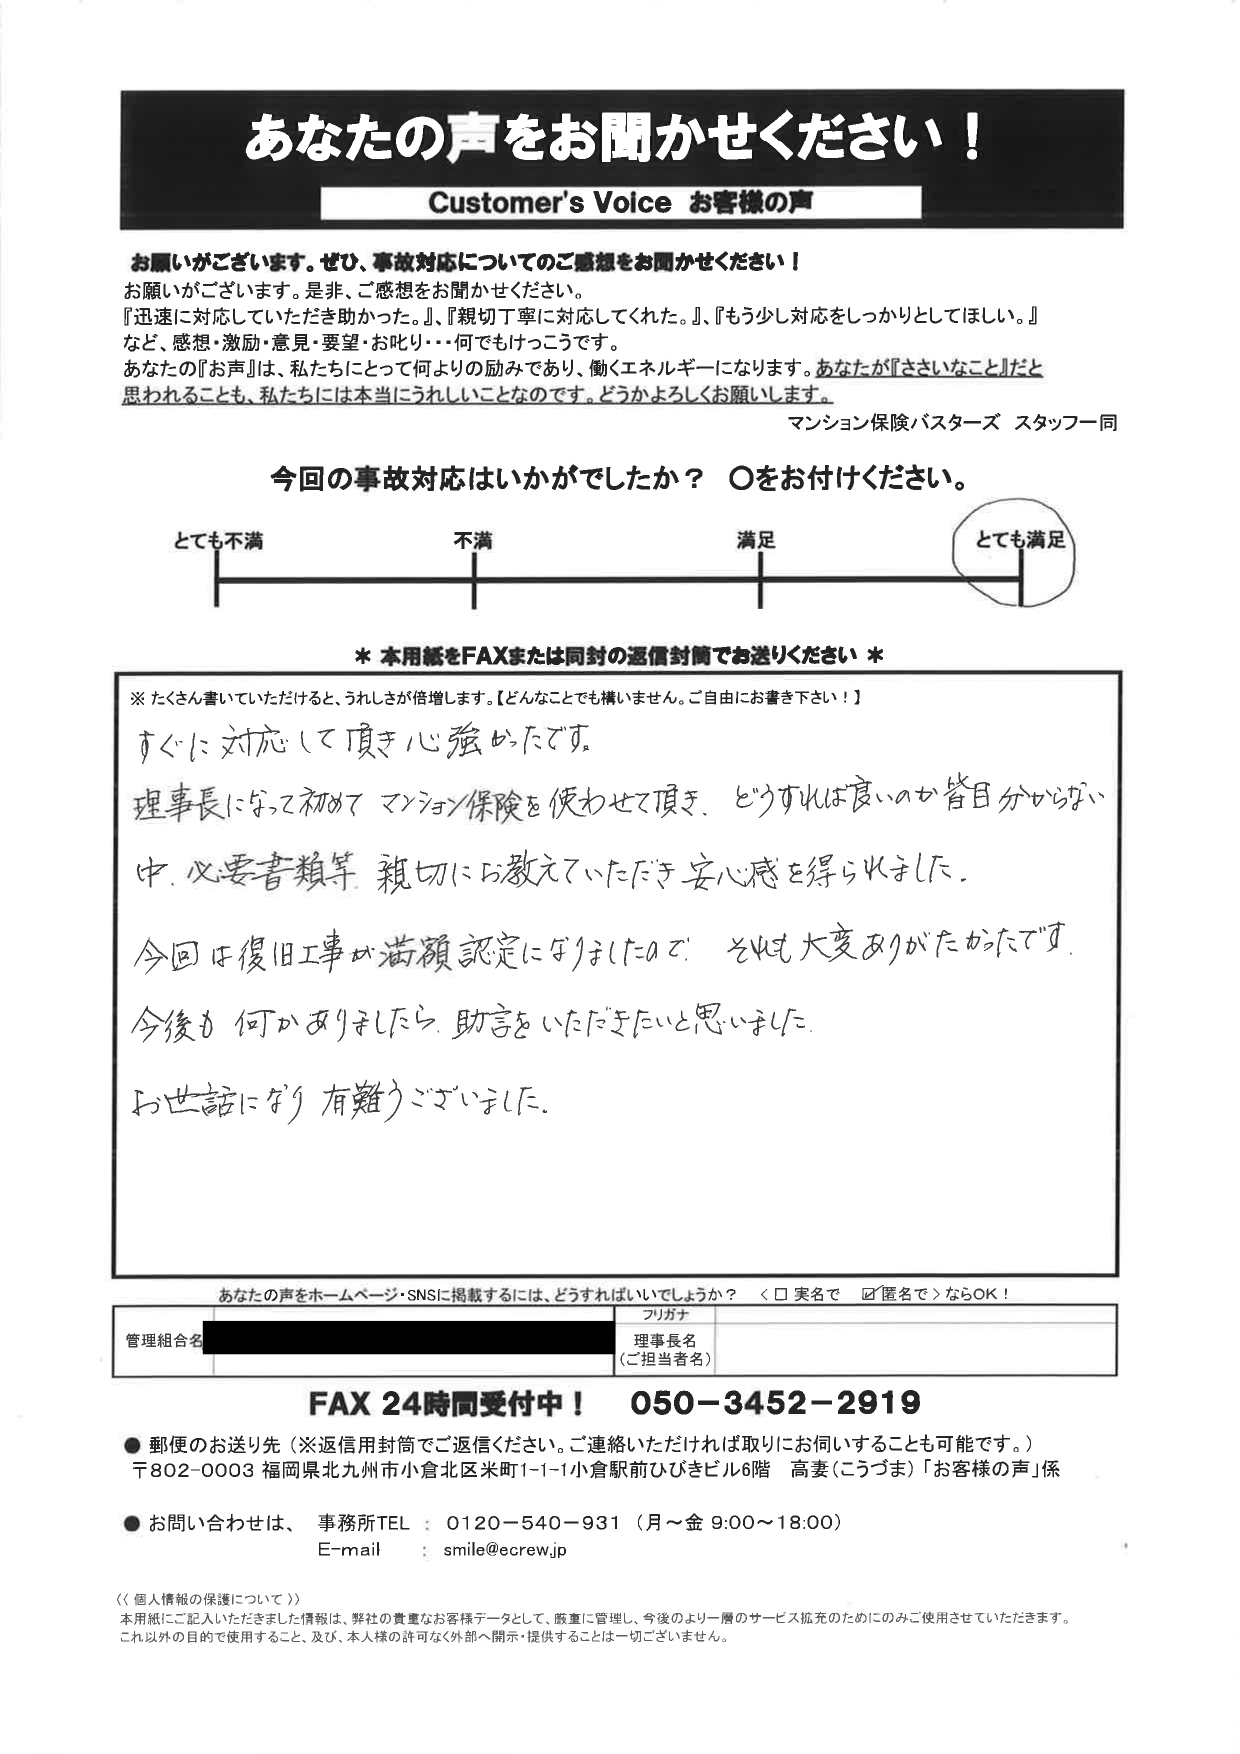 あなたの声をお聞かせください！
Customer's Voice お客様の声
お願いがございます。ぜひ、事故対応についてのご感想をお聞かせください！
お願いがございます。是非、ご感想をお聞かせください。
『迅速に対応していただき助かった。』、『親切丁寧に対応してくれた。』、『もう少し対応をしっかりとしてほしい。』
など、感想・激励・意見・要望・お叱り・・・何でもけっこうです。
あなたの『お声』は、私たちにとって何よりの励みであり、働くエネルギーになります。あなたが『ささいなこと』だと
思われることも、私たちには本当にうれしいことなのです。どうかよろしくお願いします。
マンション保険バスターズ スタッフ一同
今回の事故対応はいかがでしたか？ 〇をお付けください。
とても不満 不満 満足 とても満足
＊ 本用紙をFAXまたは同封の返信封筒でお送りください ＊
※ たくさん書いていただけると、うれしさが倍増します。【どんなことでも構いません。ご自由にお書き下さい！】
すぐに対応して頂き心強かったです。
理事長になって初めて マンション保険を使わせて頂き、どうすれば良いのか皆目分からない
中、必要書類等 親切にお教えていただき安心感を得られました。
今回は復旧工事が満額認定になりましたので、それも大変ありがたかったです。
今後も何かありましたら、助言をいただきたいと思いました。
お世話になり有難うございました。
あなたの声をホームページ・SNSに掲載するには、どうすればいいでしょうか？ 〈 □ 実名で ☑匿名で 〉ならOK！
フリガナ
管理組合名 理事長名
（ご担当者名）
FAX 24時間受付中！ 050－3452－2919
● 郵便のお送り先（※返信用封筒でご返信ください。ご連絡いただければ取りにお伺いすることも可能です。）
〒802-0003 福岡県北九州市小倉北区米町1-1-1小倉駅前ひびきビル6階 高妻（こうづま）「お客様の声」係
● お問い合わせは、 事務所TEL ： 0120－540－931 （月～金 9:00～18:00）
E-mail ： smile@ecrew.jp
〈〈 個人情報の保護について 〉〉
本用紙にご記入いただきました情報は、弊社の貴重なお客様データとして、厳重に管理し、今後のより一層のサービス拡充のためにのみご使用させていただきます。
これ以外の目的で使用すること、及び、本人様の許可なく外部へ開示・提供することは一切ございません。